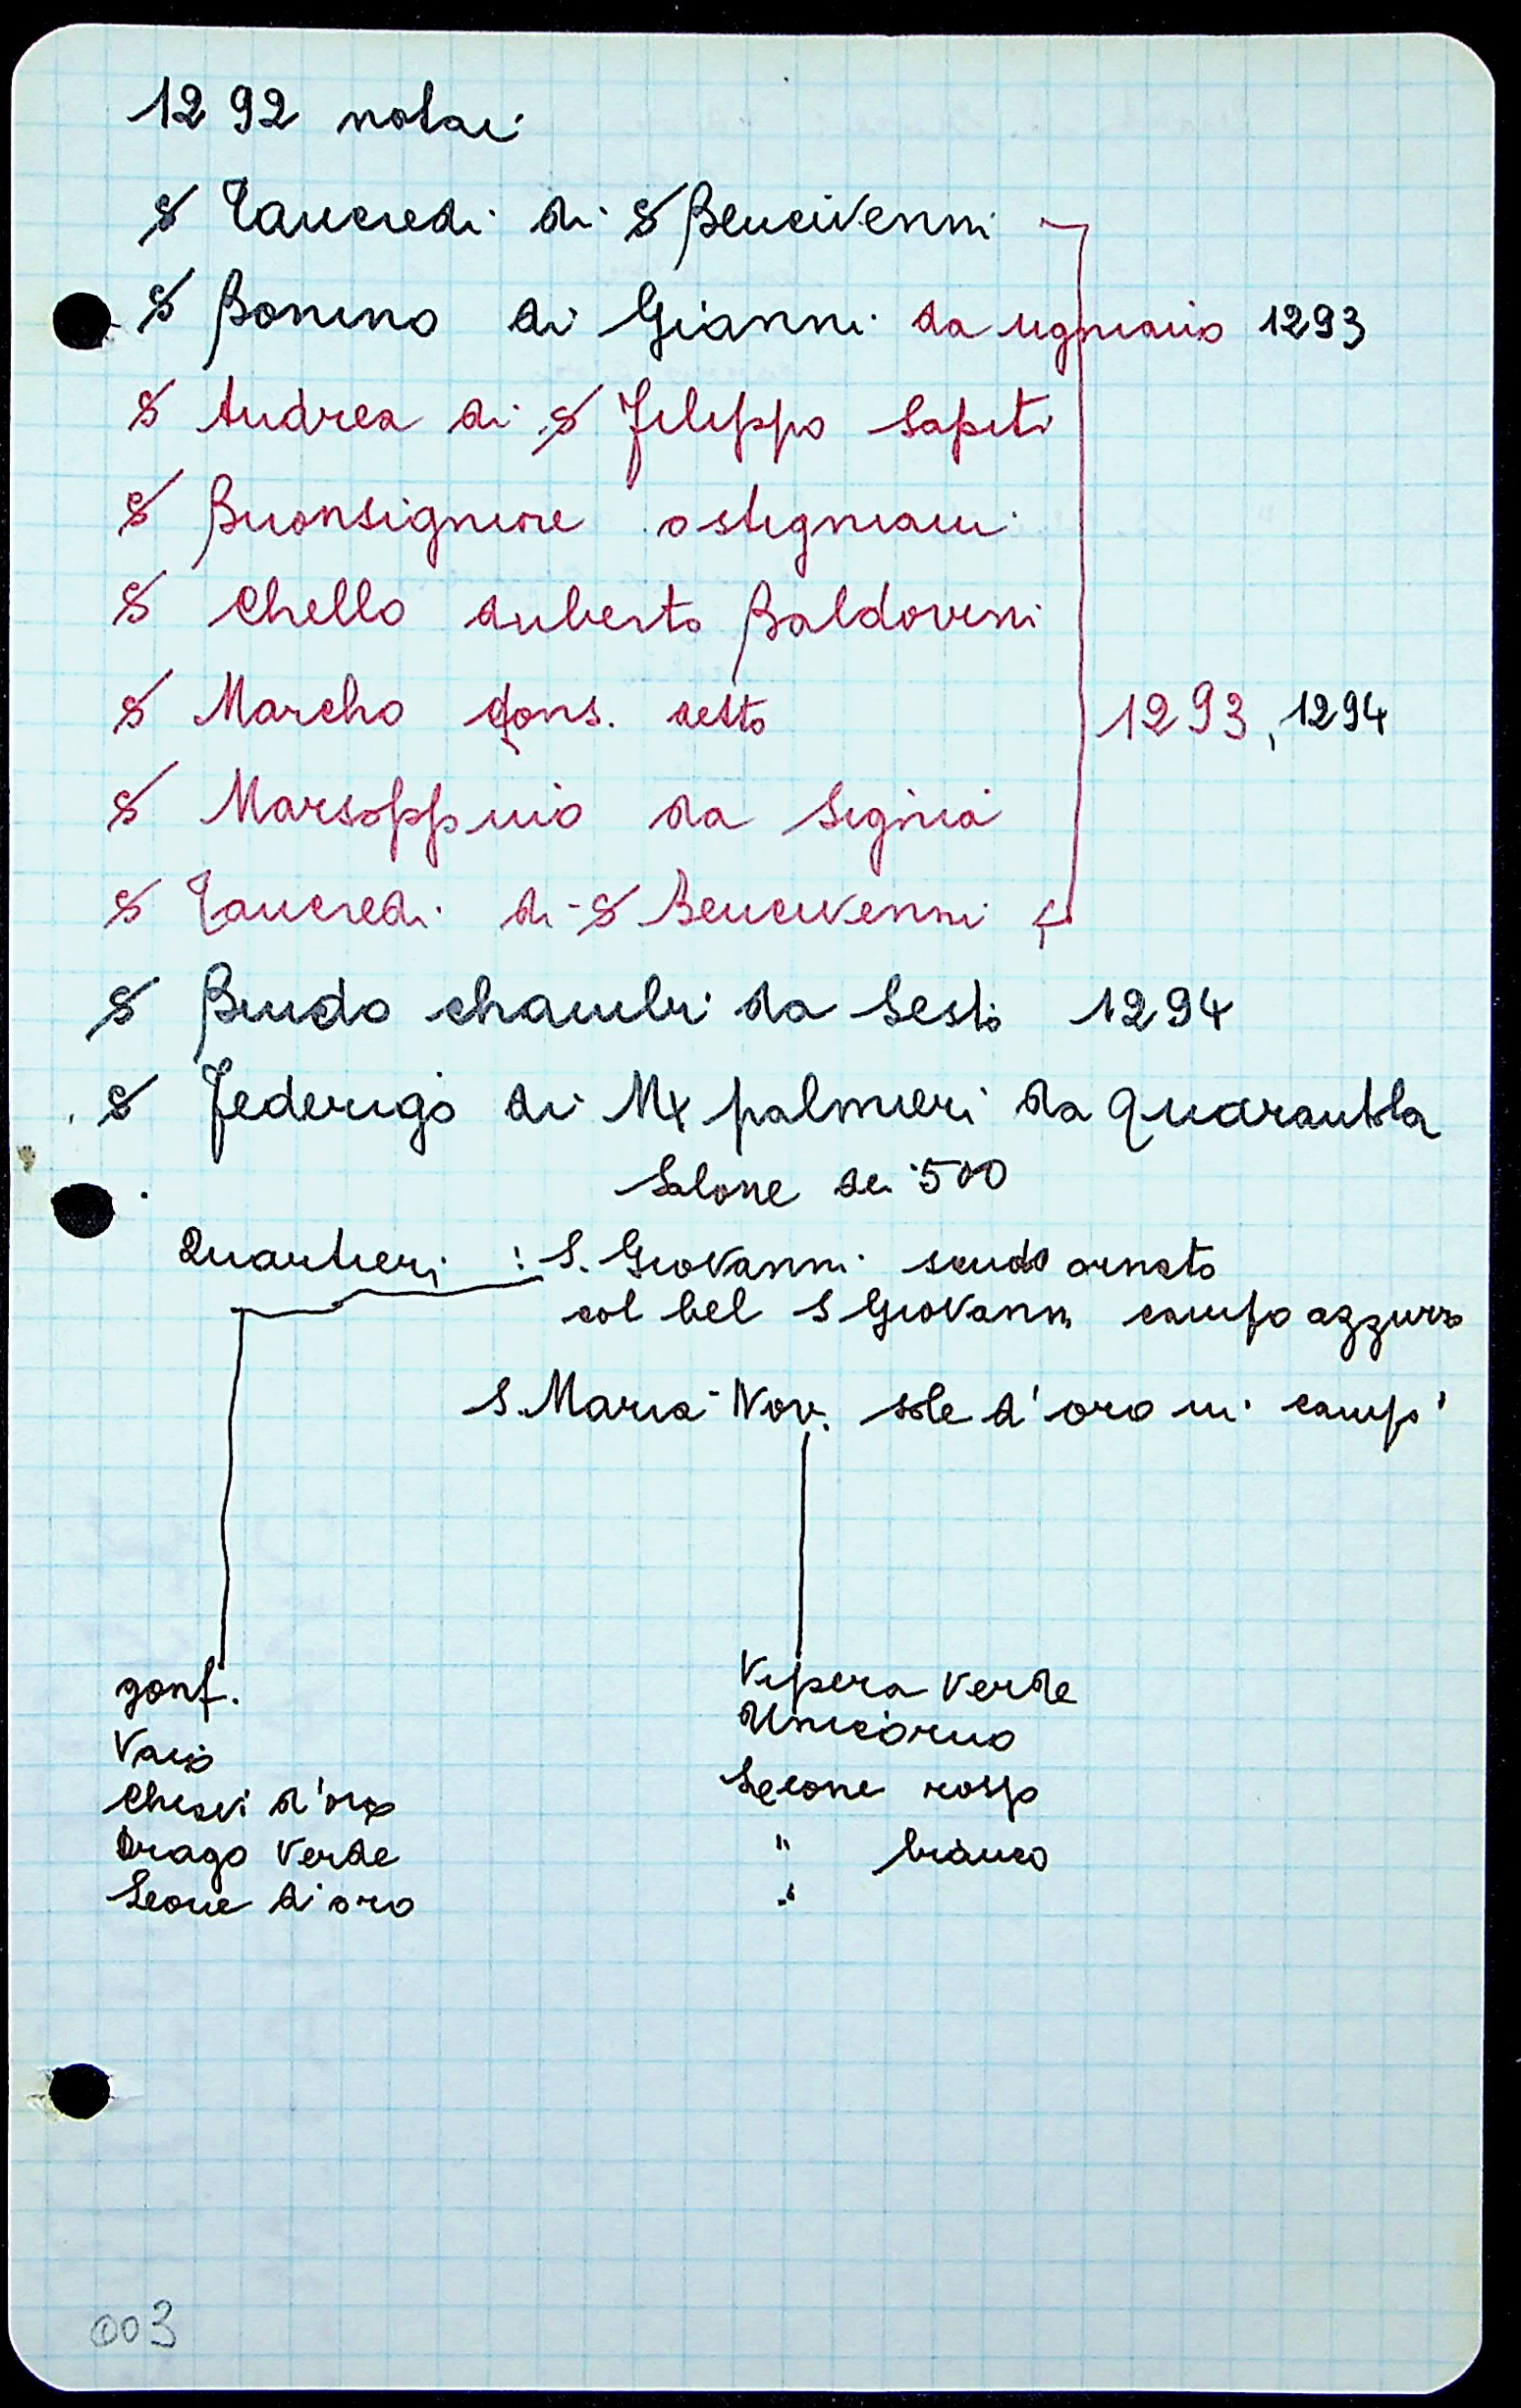 1292 notai
S Tancredi di S Bencivenni
S Bonino di Gianni da ugniano 1293
S Andrea di S Filippo Sapiti
S Buonsigniore ostigniani
S Chello auberto Baldovini
S Marcho sesto
S Marsoppino da Signia
1293, 1294
S Tancredi di S Bencivenni
S Bindo chambi da Sesto 1294
S Federigo di M palmieri da Quarantola
Salone dei 500
Quartieri : S. Giovanni scudo ornato
col bel S Giovanni campo azzurro
S. Maria Nov. sole d'oro in campo
gonf.
Vaio
Chiavi d'oro
Drago Verde
Leone d'oro
Vipera Verde
Unicorno
Leone rosso
" bianco
"
003